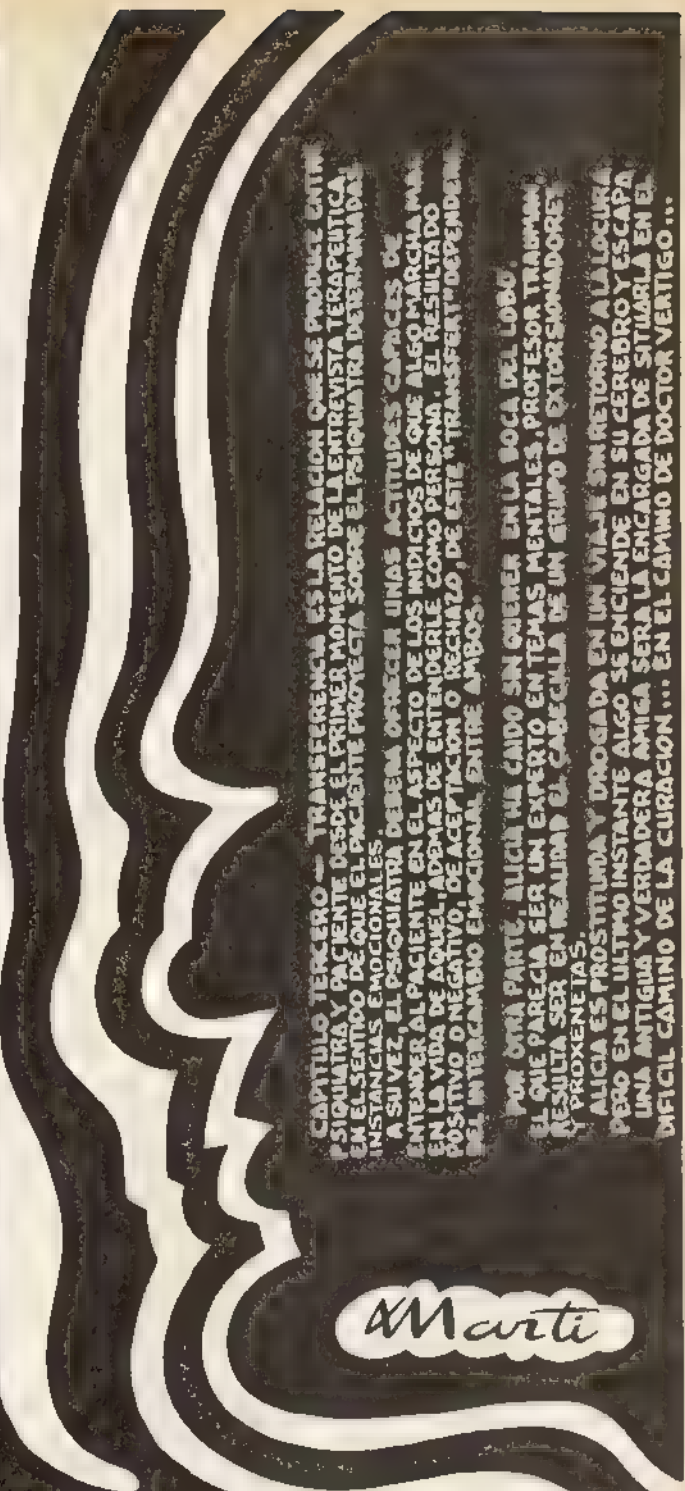 CAPITULO TERCERO — TRANSFERENCIA ES LA RELACION QUE SE PRODUCE ENTRE
PSIQUIATRA Y PACIENTE DESDE EL PRIMER MOMENTO DE LA ENTREVISTA TERAPEUTICA,
EN EL SENTIDO DE QUE EL PACIENTE PROYECTA SOBRE EL PSIQUIATRA DETERMINADAS
INSTANCIAS EMOCIONALES.
A SU VEZ, EL PSIQUIATRA DEBERA OFRECER UNAS ACTITUDES CAPACES DE
ENTENDER AL PACIENTE EN EL ASPECTO DE LOS INDICIOS DE QUE ALGO MARCHA MAL
EN LA VIDA DE AQUEL, ADEMAS DE ENTENDERLE COMO PERSONA. EL RESULTADO
POSITIVO O NEGATIVO, DE ACEPTACION O RECHAZO, DE ESTE "TRANSFERT" DEPENDERA
DEL INTERCAMBIO EMOCIONAL ENTRE AMBOS.
POR OTRA PARTE, ALICIA HA CAIDO SIN QUERER EN LA BOCA DEL LOBO.
EL QUE PARECIA SER UN EXPERTO EN TEMAS MENTALES, PROFESOR
RESULTA SER EN REALIDAD EL CABECILLA DE UN GRUPO DE EXTORSIONADORES
Y PROXENETAS.
ALICIA ES PROSTITUIDA Y DROGADA EN UN VIAJE SIN RETORNO A LA LOCURA
PERO EN EL ULTIMO INSTANTE ALGO SE ENCIENDE EN SU CEREBRO Y ESCAPA
UNA ANTIGUA Y VERDADERA AMIGA SERA LA ENCARGADA DE SITUARLA EN EL
DIFICIL CAMINO DE LA CURACION... EN EL CAMINO DE DOCTOR VERTIGO...
XMarti